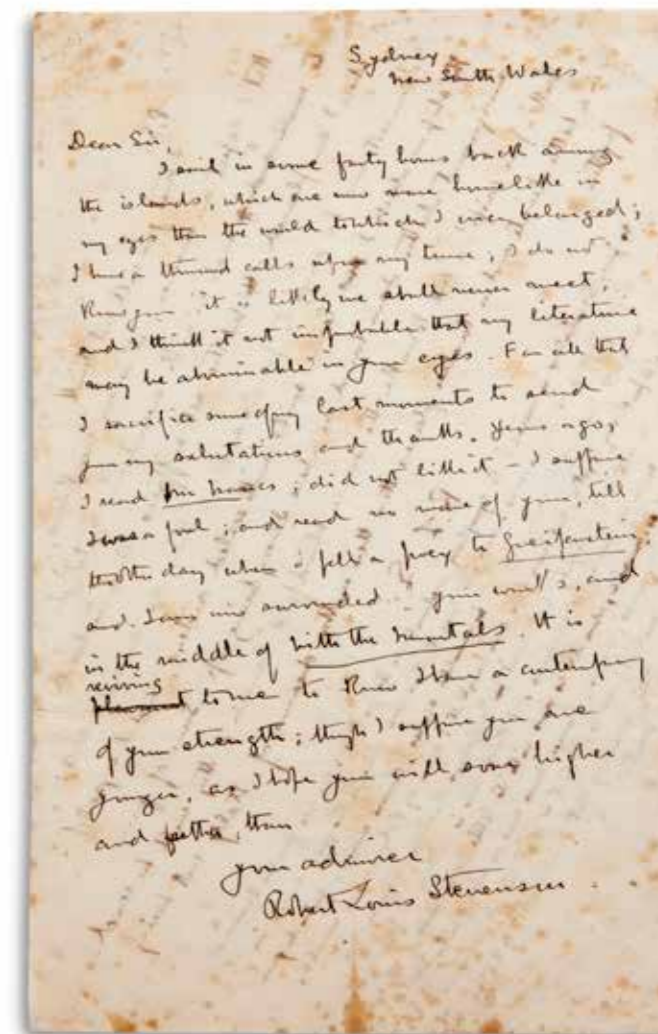 Sydney
New South Wales
Dear Sir,
I sail in some forty hours back among
the islands, which are now more homelike in
my eyes than the world to which I once belonged;
I have a thousand calls upon my time; I do not
know you it is likely we shall never meet,
and I think it not improbable that my literature
may be abominable in your eyes. For all that
I sacrifice some of my last moments to send
you my salutations and thanks. Years ago,
I read Mr Isaacs; did not like it – I suppose
I was a fool; and read no more of yours, till
the other day when I fell a prey to Greifenstein,
and I am now surrounded your works, and
in the middle of With the Immortals. It is
reviving
pleasant to me to know I have a contemporary
of your strength; though I suppose you are
younger, as I hope you will soar higher
and further, than
your admirer
Robert Louis Stevenson.